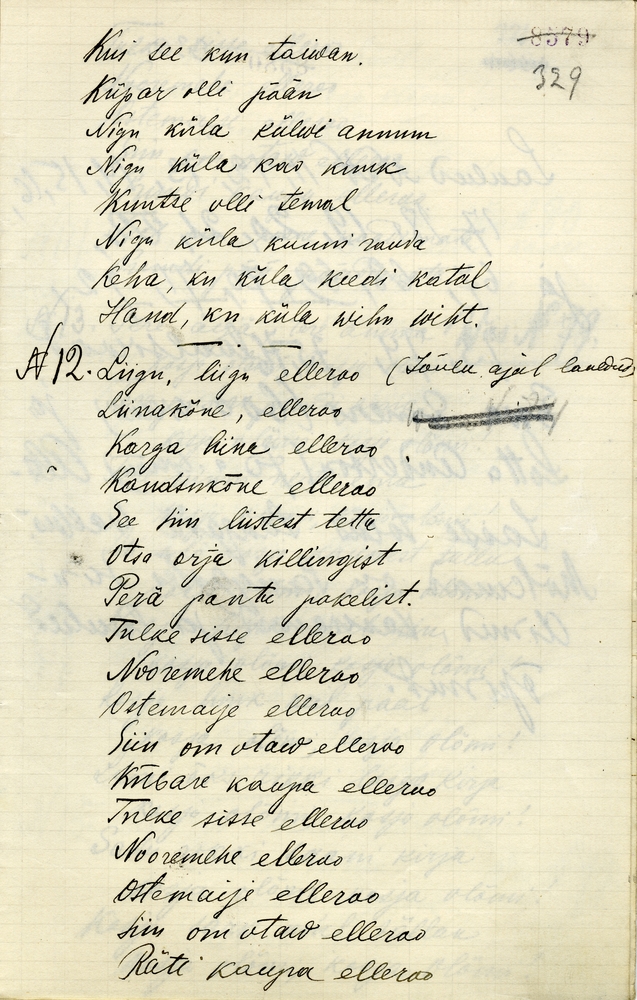 8579
329
Kui see kuu taiwan.
Küpar olli pään
Nigu küla külwi annum
Nigu küla kao kuuk
Kuntse olli temal
Nigu küla kuuni rauda
Keha, ku küla keedi katal
Hand, ku küla wihu wiht.
N 12. Liigu, liigu elleroo (Jõulu ajal lauldud)
Liinakõne, elleroo
Karga hina elleroo
Kandsukõne elleroo
See siin liistest tettu
Otsa orja killingist
Perä pantu pakelist.
Tulke sisse elleroo
Nooremehe elleroo
Ostemaije elleroo
Siin om otaw elleroo
Kübare kaupa elleroo
Tulke sisse elleroo
Nooremehe elleroo
Ostemaije elleroo
Siin om otaw elleroo
Räti kaupa elleroo